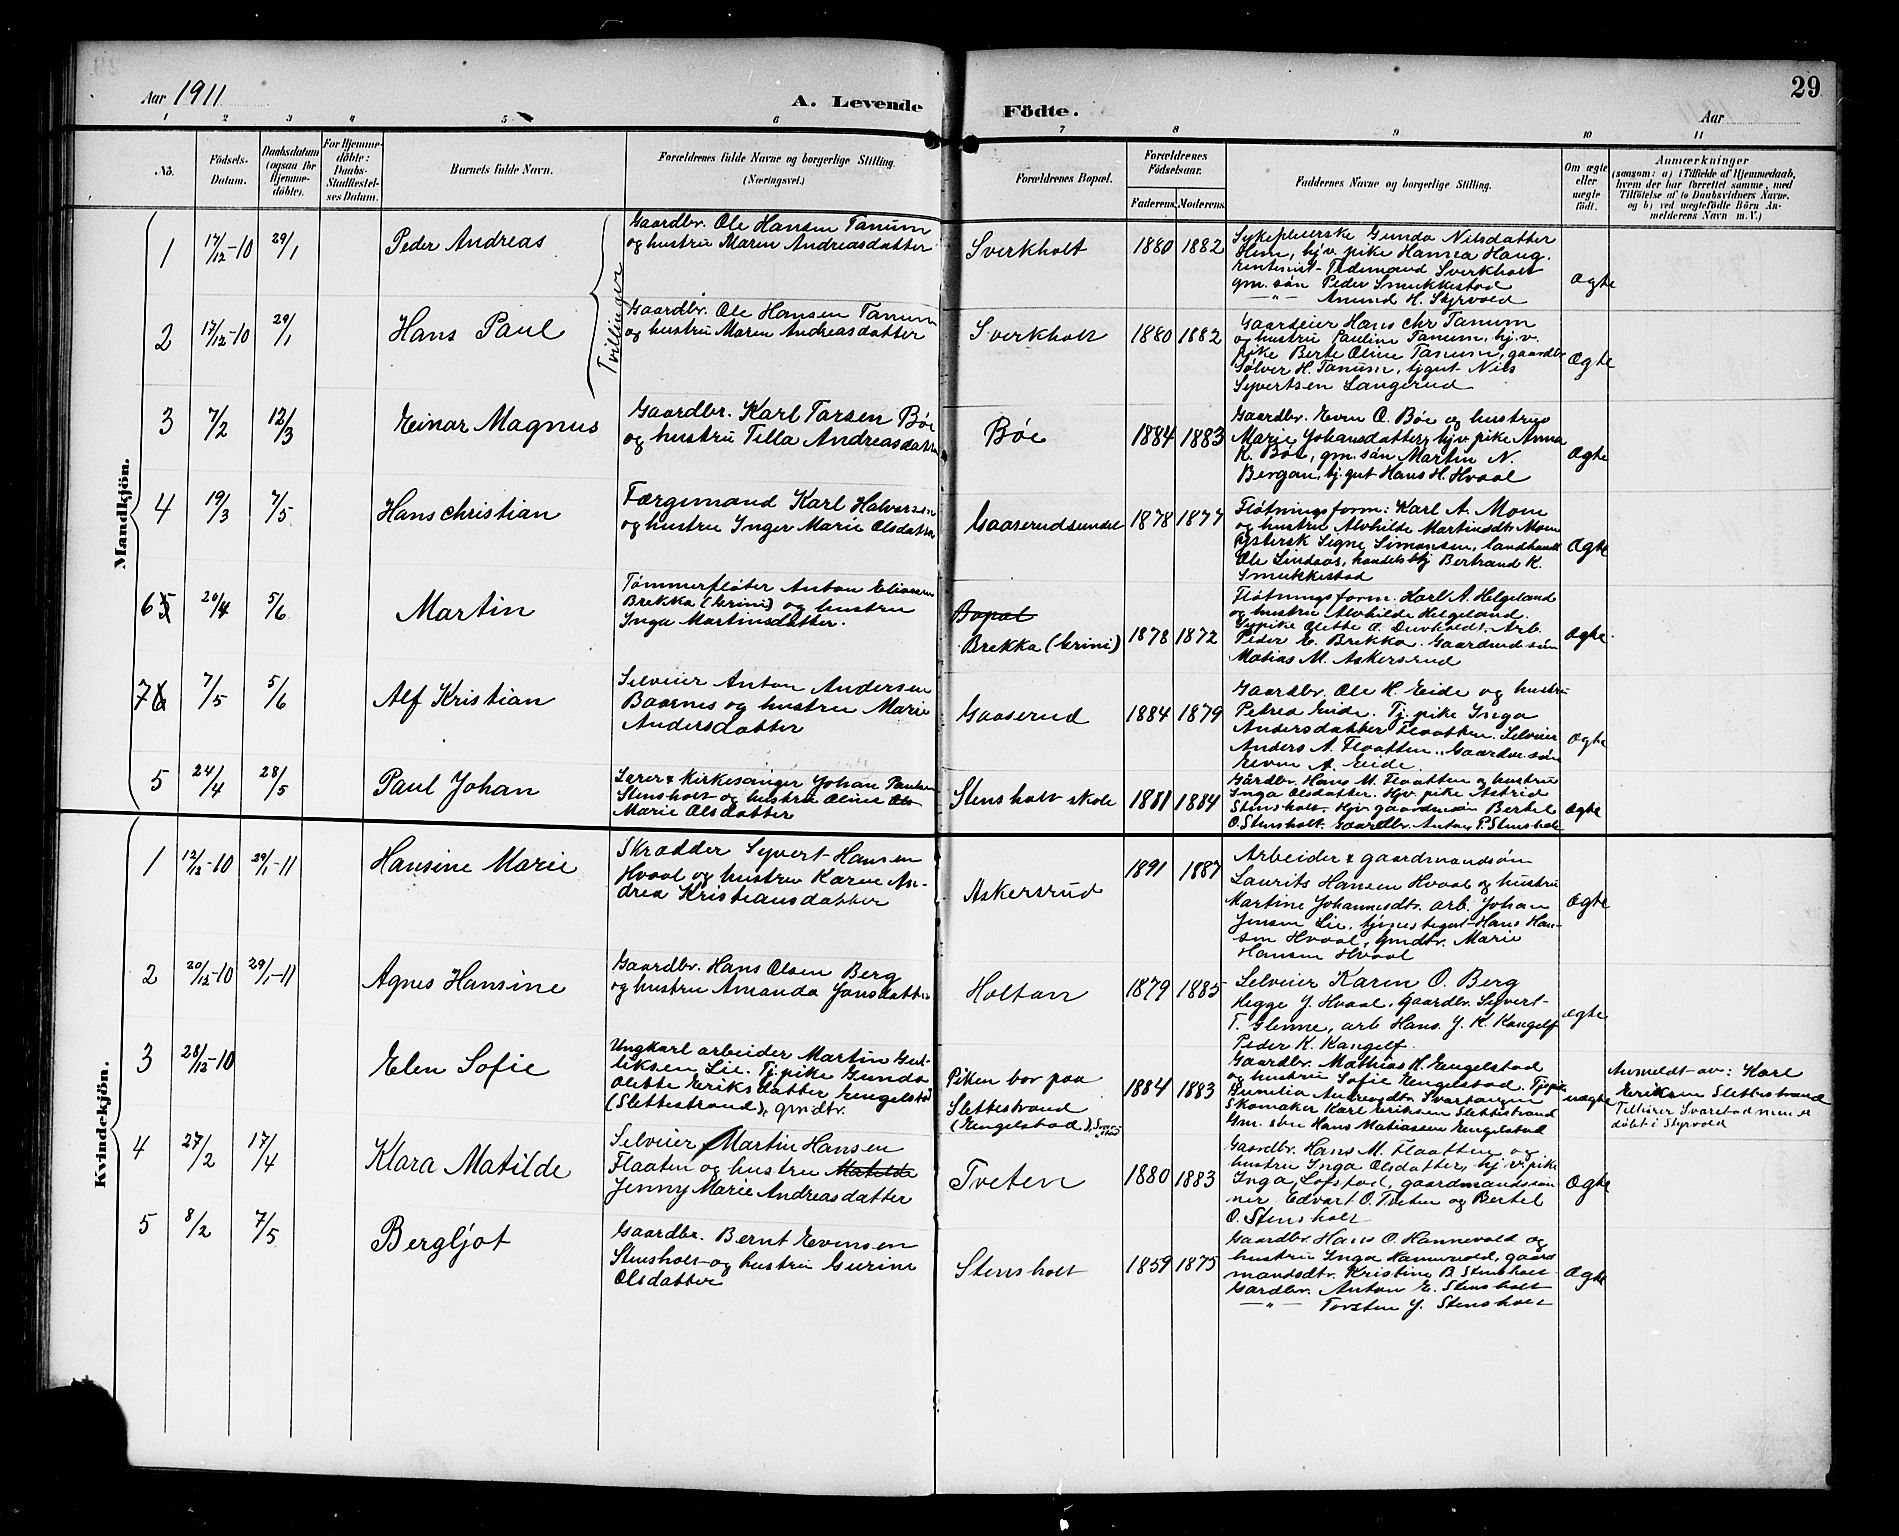 Aar 1911
A. Levende
Födte.
29
Aar
1 2 3 4 5 6 7 8 9 10 11
No.
Födsels-
Datum.
Daabsdatum
(ogsaa for
Hjemme-
döbte).
For Hjemme-
döbte:
Daabs-
Stadfæstel-
ses Datum.
Barnets fulde Navn.
Forældrenes fulde Navne og borgerlige Stilling.
(Næringsvei.)
Forældrenes Bopæl.
Forældrenes
Födselsaar.
Faderens. Moderens.
Faddernes Navne og borgerlige Stilling.
Om ægte
eller
uægte
födt.
Anmærkninger
(saasom: a) i Tilfælde af Hjemmedaab,
hvem der har forrettet samme, med
Tilföielse af to Daabsvidners Navne,
og b) ved uægtefödte Börn An-
melderens Navn m. V.)
Mandkjön.
1 17/12-10 29/1
Peder Andreas
Tvillinger
Gaardbr. Ole Hansen Tanum
og hustru Maren Andreasdatter
Sverkholt
1880 1882
Sykepleierske Gunda Nilsdatter
Hem, hjv. pike Hansea Haug.
rentenist Tidemand Sverkholt
gm. søn Peder Smukkestad
— " — Amund H. Styrvold
Ægte
2 17/12-10 29/1
Hans Paul
Gaardbr. Ole Hansen Tanum
og hustru Maren Andreasdatter
Sverkholt
1880 1882
Gaardeier Hans Chr Tanum
og hustru Pauline Tanum, hj.v.
pike Berte Oline Tanum, gaardbr
Sølver H. Tanum, tj.gut Nils
Syvertsen Langerud
Ægte
3 7/2 12/3
Einar Magnus
Gaardbr. Karl Larsen Bøe
og hustru Tilla Andreasdatter
Bøe
1884 1883
Gaardbr. Even O. Bøe og hustru
Marie Johansdatter, hjv. pike Anna
K. Bøe, gm. søn Martin N.
Bergan, tj. gut Hans H. Hvaal
Ægte
4 19/3 7/5
Hans Christian
Færgemand Karl Halvorsen
og hustru Inger Marie Olsdatter
Gaaserudsundet
1878 1877
Fløtningsform: Karl A. Moen
og hustru Alvhilde Martinsdtr Moen
Signe Simonsen, landhandl
Ole Lindsås, handelsbtj Bertrand K.
Smukkestad
Ægte
65 20/4 5/6
Martin
Tømmerfløter Anton Eliassen
Brekka (Grini) og hustru
Inga Martinsdatter.
Bopæl
Brekka (Grini)
1878 1872
Fløtningsform. Karl A. Helgeland
og hustru Alvhilde Helgeland.
Olette A. Arb.
Peder E. Brekka. Gaardm.søn
Matias M. Askersrud
Ægte.
76 7/5 5/6
Alf Kristian
Selveier Anton Andersen
Baarnes og hustru Marie
Andersdatter
Gaaserud
1884 1879
Gaardbr. Ole H. Eide og hustru
Petrea Eide. Tj. pike Inga
Andersdatter Flaatten. Selveier
Anders A. Flaatten. Gaardm. søn
Even A. Eide.
Ægte
5 24/4 28/5
Paul Johan
Lærer & Kirkesanger Johan Paulsen
Stensholt og hustru Oline Ols
Marie Olsdatter
Stensholt skole
1881 1884
Gårdbr. Hans M. Flaatten og hustru
Inga Olsdatter. Hjv. pike Astrid
Stensholt. Hjv. gaardm.søn Bertel
O. Stensholt. Gaardbr. Anton P. Stensholt
Ægte
Kvindekjön.
1 12/12-10 29/1-11
Hansine Marie
Skrædder Syvert Hansen
Hvaal og hustru Karen An-
drea Kristiansdatter
Askersrud
1891 1887
Arbeider & gaardmandsøn
Laurits Hansen Hvaal og hustru
Martine Johannesdtr. arb. Johan
Jensen Lie, tjenestegut Hans Han-
sen Hvaal, Gmdtr. Marie
Hansen Hvaal
Ægte
2 20/12-10 29/1-11
Agnes Hansine
Gaardbr. Hans Olsen Berg
og hustru Amanda Jonsdatter
Holtan
1879 1885
Selveier Karen O. Berg
Hegge J. Hvaal, Gaardbr. Syvert
T. Glenne, arb Hans J. K. Kangelf
Peder K. Kangelf.
Ægte
3 28/12-10
Elen Sofie
Ungkarl arbeider Martin Gul-
liksen Lie. Tj.pike Gunda
Olette Eriksdatter Engelstad
(Slettestrand), gmdtr.
Piken bor paa
Slettestrand
(Engelstad),
1884 1883
Gaardbr. Mathias H. Engelstad
og hustru Sofie Engelstad. Tj.pike
Andreasdtr Svartangen
Skomaker Karl Eriksen Slettestrand
Gm. søn Hans Matiassen Engelstad
uægte
Anmeldt av: Karl
Eriksen Slettestrand
Tilhører Svarstad men er
døbt i Styrvold
4 27/2 17/4
Klara Matilde
Selveier Martin Hansen
Flaaten og hustru Matilde
Jenny Marie Andreasdatter
Tveten
1880 1883
Gaardbr. Hans M. Flaatten og
hustru Inga Olsdatter, hj v. pike
Inga Lofstad, gaardmandssøn-
ner Edvart O. Tveten og Bertel
O. Stensholt
Ægte
5 8/2 7/5
Bergljot
Gaardbr. Bernt Evensen
Stensholt og hustru Gurine
Olsdatter
Stensholt
1859 1875
Gaardbr. Hans O. Hannevold og
hustru Inga Hannevold, gaard
mandsdtr. Kristine B. Stensholt
Gardbr. Anton E. Stensholt
— " — Torsten J. Stensholt
Ægte